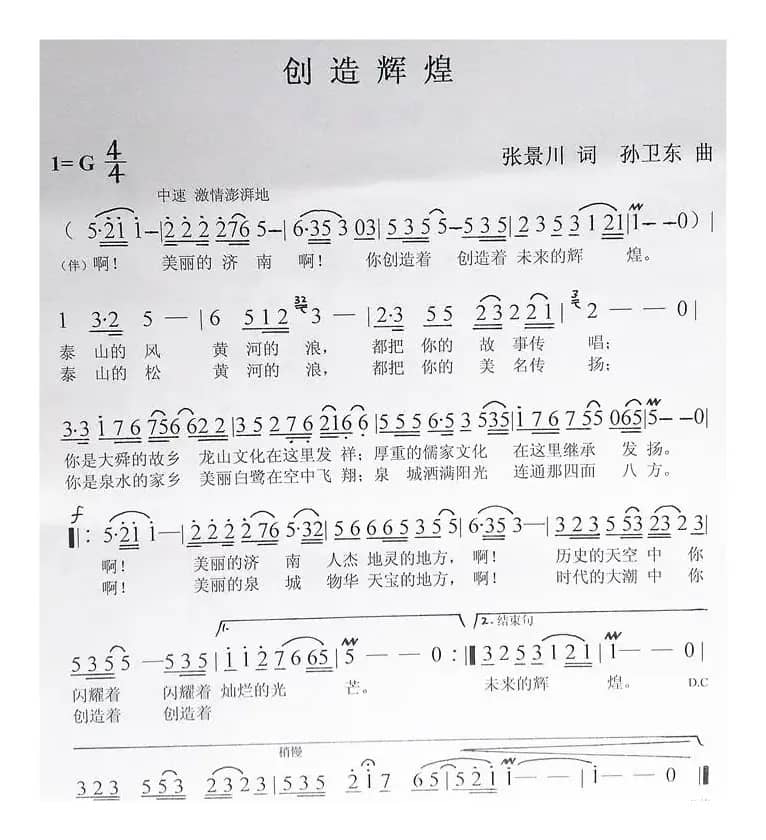 创造辉煌
1=G 4/4
张景川 词 孙卫东 曲
中速 激情澎湃地
( 5·2i i-|2 2 2 2·76 5-|6·35 3 03|5 3 5 5-5 3 5|2 3 5 3 1 21|i--0)|
(伴)啊! 美丽的 济 南 啊! 你创造着 创造着 未来的辉 煌。
1 3·2 5 —|6 5 1 2 32 3 —|2·3 5 5 2 3 2 2 1|3 2 — — 0|
泰 山的 风 黄 河的 浪, 都把 你的 故 事传 唱;
泰 山的 松 黄 河的 浪, 都把 你的 美 名传 扬;
3·3 i 7 6 756 62 2|3 5 2 7·6 216 6|5 5 5 6·5 3 535|i 7 6 7 5 5 065|5--0|
你是大舜的故乡 龙山文化在这里发 祥; 厚重的儒家文化 在这里继承 发 扬。
你是泉水的家乡 美丽白鹭在空中飞 翔; 泉 城洒满阳光 连通那四面 八 方。
f
‖: 5·2i i—|2 2 2 2·76 5·32|5 6 6 6 5 3 5 5|6·35 3—|3 2 3 5 53 23 2 3|
啊! 美丽的济 南 人杰 地灵的地方, 啊! 历史的天空 中 你
啊! 美丽的泉 城 物华 天宝的地方, 啊! 时代的大潮 中 你
1.
2. 结束句
5 3 5 5 —5 3 5|i i 2 7 6 65|5— — 0 :‖3 2 5 3 1 2 1|i— — 0|
闪耀着 闪耀着 灿烂的光 芒。 未来的辉 煌。 D.C
创造着 创造着
稍慢
3 2 3 5 5 3 2 3 2 3|5 3 5 2·i 7 6 5|5 2 i i—|i— — 0‖